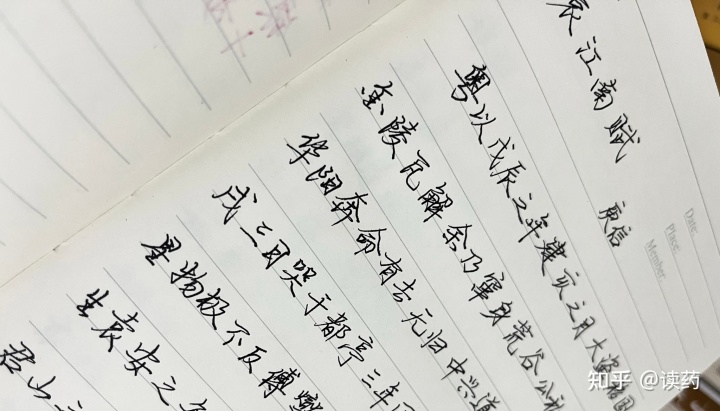 哀江南赋
庾信
Date:
Place:
Member:
粤以戊辰之年建亥之月大盗
金陵瓦解余乃窜身荒谷公私
华阳奔命有去无归中兴道
戌三日哭于都亭三年
星物极不反傅燮
生袁安之每
君山之
知乎 @读药